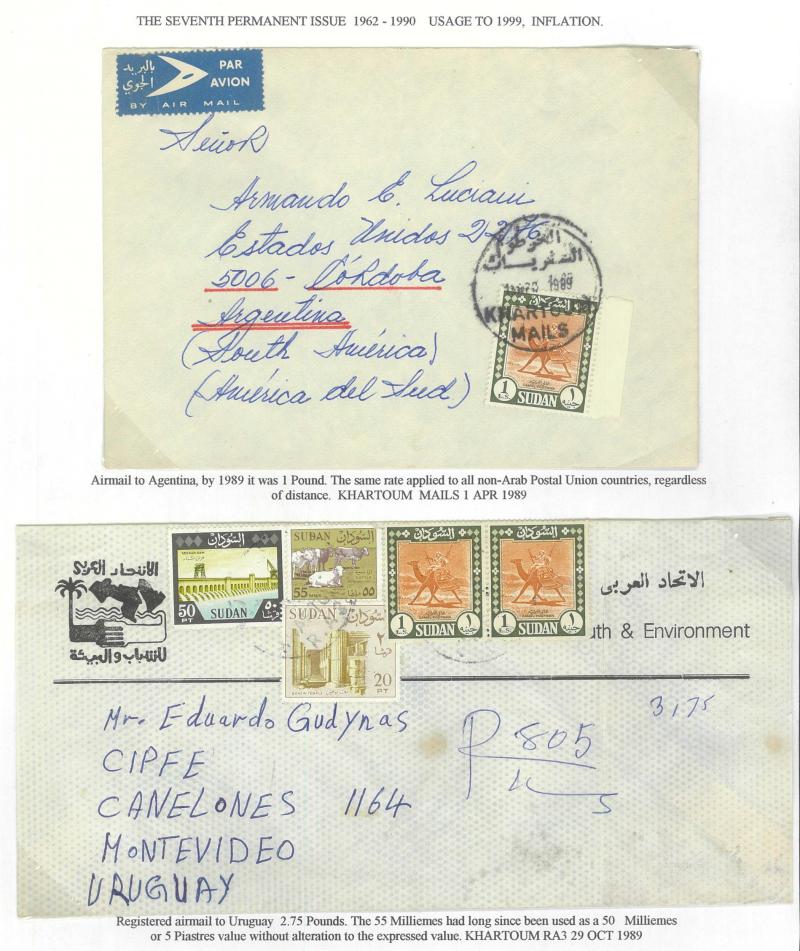 THE SEVENTH PERMANENT ISSUE 1962 - 1990 USAGE TO 1999, INFLATION.
بالبريد PAR
الجوي AVION
BY AIR MAIL
Señor
Armando E. Luciani
Estados Unidos 2276
5006 - Córdoba
Argentina
(South América)
(América del Sud)
الخرطوم
السفريات
1989
KHARTOUM
MAILS
السودان
1 L.S. SUDAN ١ جنيه
Airmail to Agentina, by 1989 it was 1 Pound. The same rate applied to all non-Arab Postal Union countries, regardless
of distance. KHARTOUM MAILS 1 APR 1989
الاتحاد العربي
للشباب والبيئة
السودان
50 PT SUDAN ٥٠
SUDAN السودان
55 ٥٥
SUDAN السودان
٢٠
20 PT
السودان
1 L.S. SUDAN ١ جنيه
السودان
1 L.S. SUDAN ١ جنيه
الاتحاد العربى
uth & Environment
3,75
Mr. Eduardo Gudynas
CIPFE
CANELONES 1164
MONTEVIDEO
URUGUAY
R 805
Registered airmail to Uruguay 2.75 Pounds. The 55 Milliemes had long since been used as a 50 Milliemes
or 5 Piastres value without alteration to the expressed value. KHARTOUM RA3 29 OCT 1989